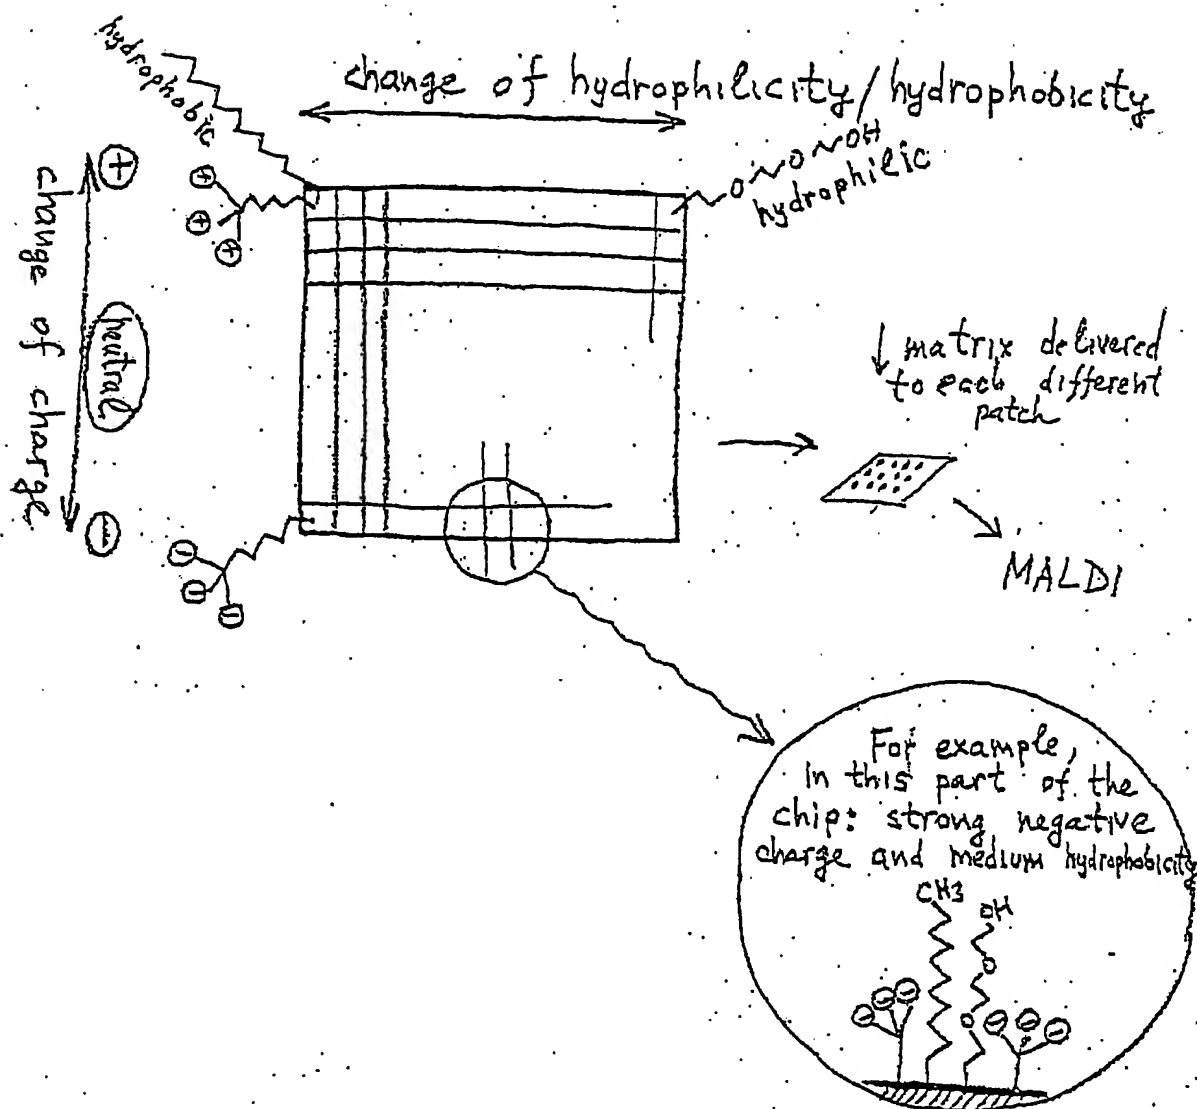 change of hydrophilicity/hydrophobicity
hydrophobic
O O OH
hydrophilic
+
+
+
+
change of charge
neutral
−
−
−
−
matrix delivered
to each different
patch
MALDI
For example,
in this part of the
chip: strong negative
charge and medium hydrophobicity
CH3
OH
O
O
− − −
− − −